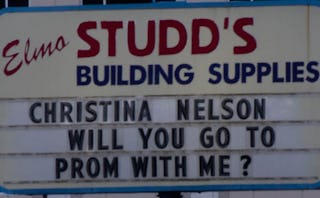 Elmo STUDD'S
BUILDING SUPPLIES
CHRISTINA NELSON
WILL YOU GO TO
PROM WITH ME?